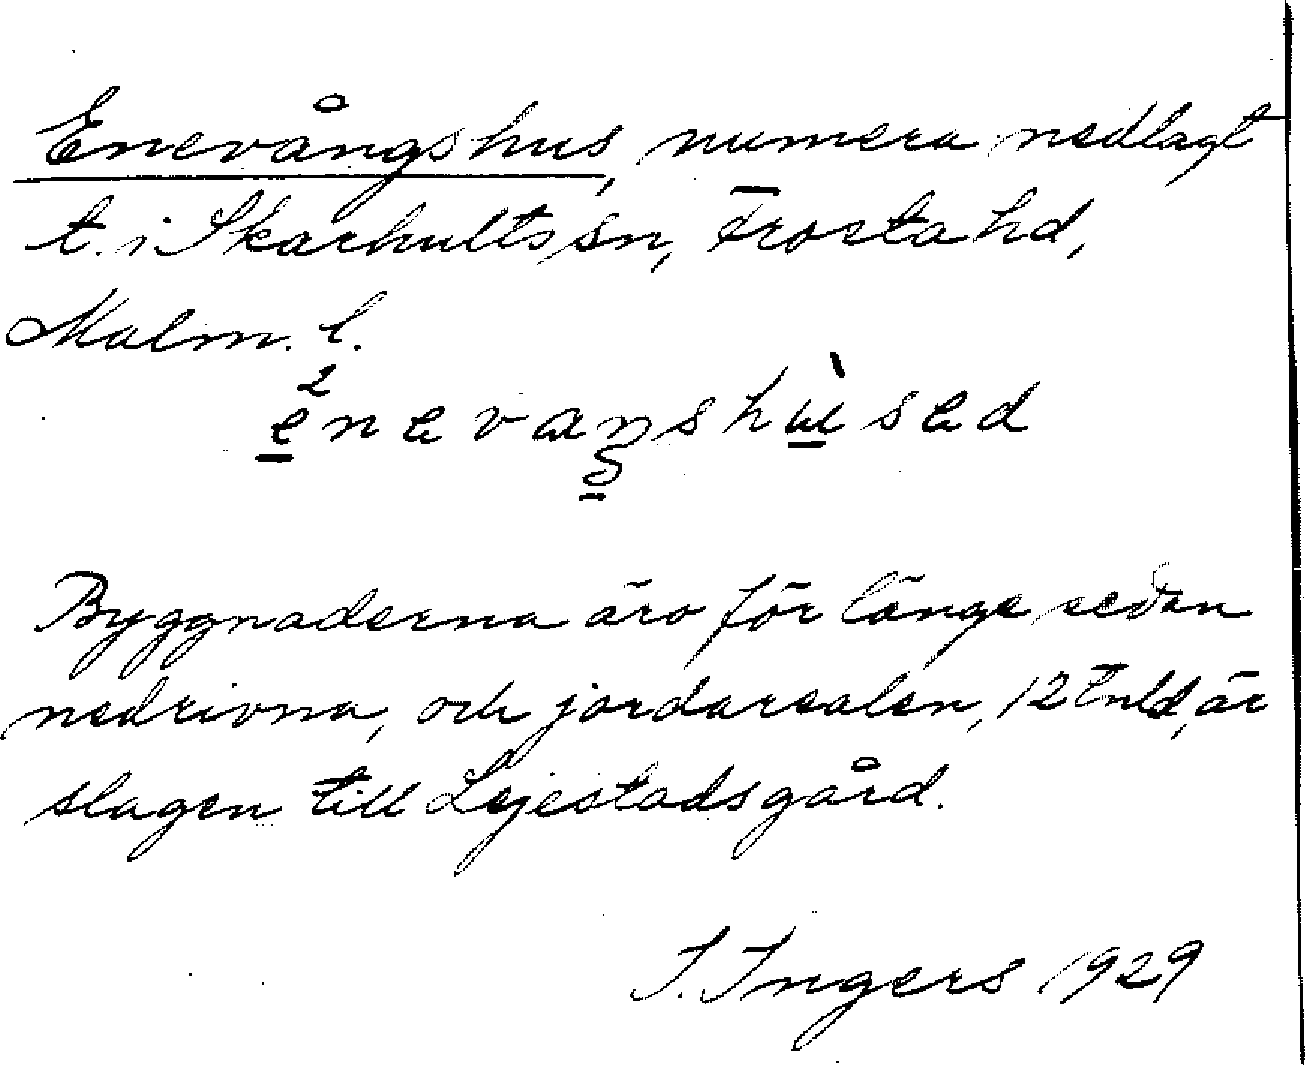 Enevångshus, numera nedlagt
t. i Skarhults sn, Frosta hd,
Malm. l.
enevaŋshùsed
Byggnaderna äro för länge sedan
nedrivna, och jordarealen, 12 tnld, är
slagen till Lejestadsgård.
I. Ingers 1929